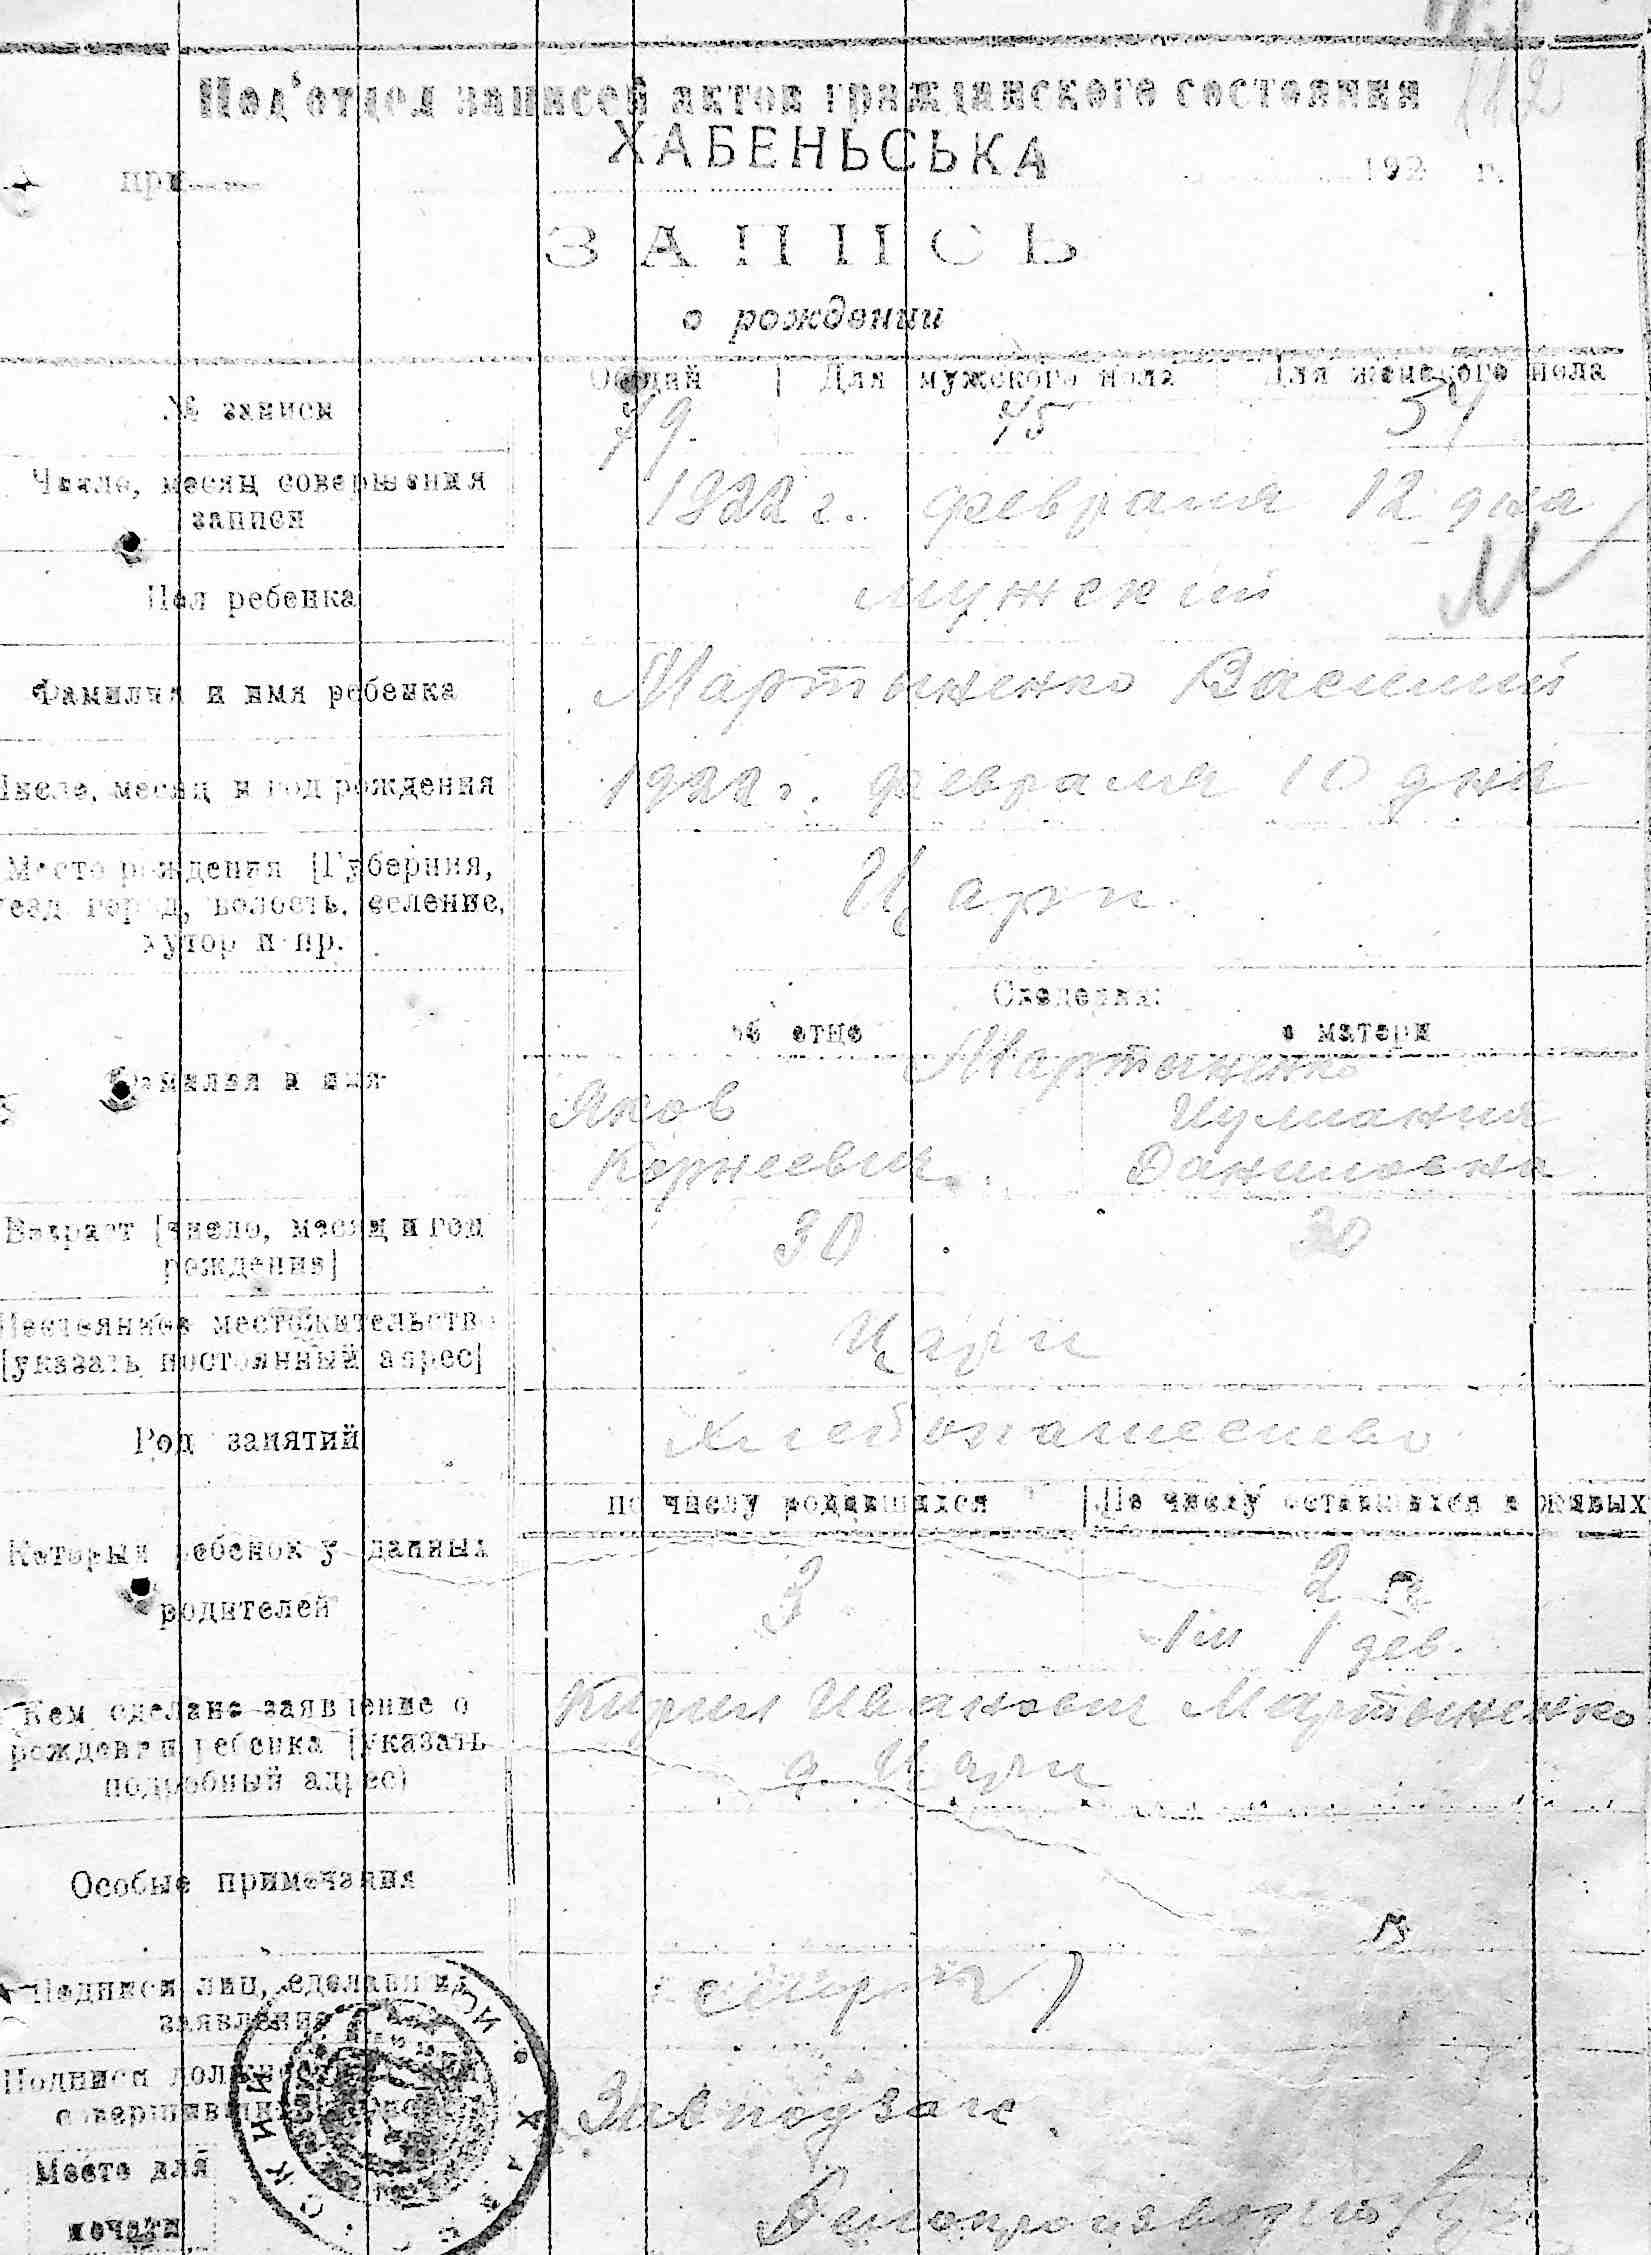 Под'отдел записей актов гражданского состояния
112
ХАБЕНЬСЬКА
при 192 г.
ЗАПИСЬ
о рождении
Общий Для мужского пола Для женского пола
№ записи 79. 45
Число, месяц совершения
записи
1922 г. февраля 12 дня
Пол ребенка мужский
Фамилия и имя ребенка Мартыненко Василий
Число, месяц и год рождения 1922 г. февраля 10 дня
Место рождения [Губерния,
уезд город, волость, селение,
хутор и пр.
Цари
Сведения:
об отце о матери
Мартыненко
Фамилия и имя
Яков
Корнеевич
Иулиания
Даниловна
Возраст [число, месяц и год
рождения]
30 30
Постоянное местожительство
[указать постоянный адрес]
Цари
Род занятий хлебопашество
по числу родившихся По числу оставшихся в живых
Который ребенок у данных
родителей
3 2
1 м 1 дев.
Кем сделано заявление о
рождении ребенка [указать
подробный адрес)
Кирил Иванович Мартыненко
д. Цари
Особые примечания
Подписи лиц, сделавших
заявление
Подписи
совершивших
Завподзагс
Место для
печати
Делопроизводитель